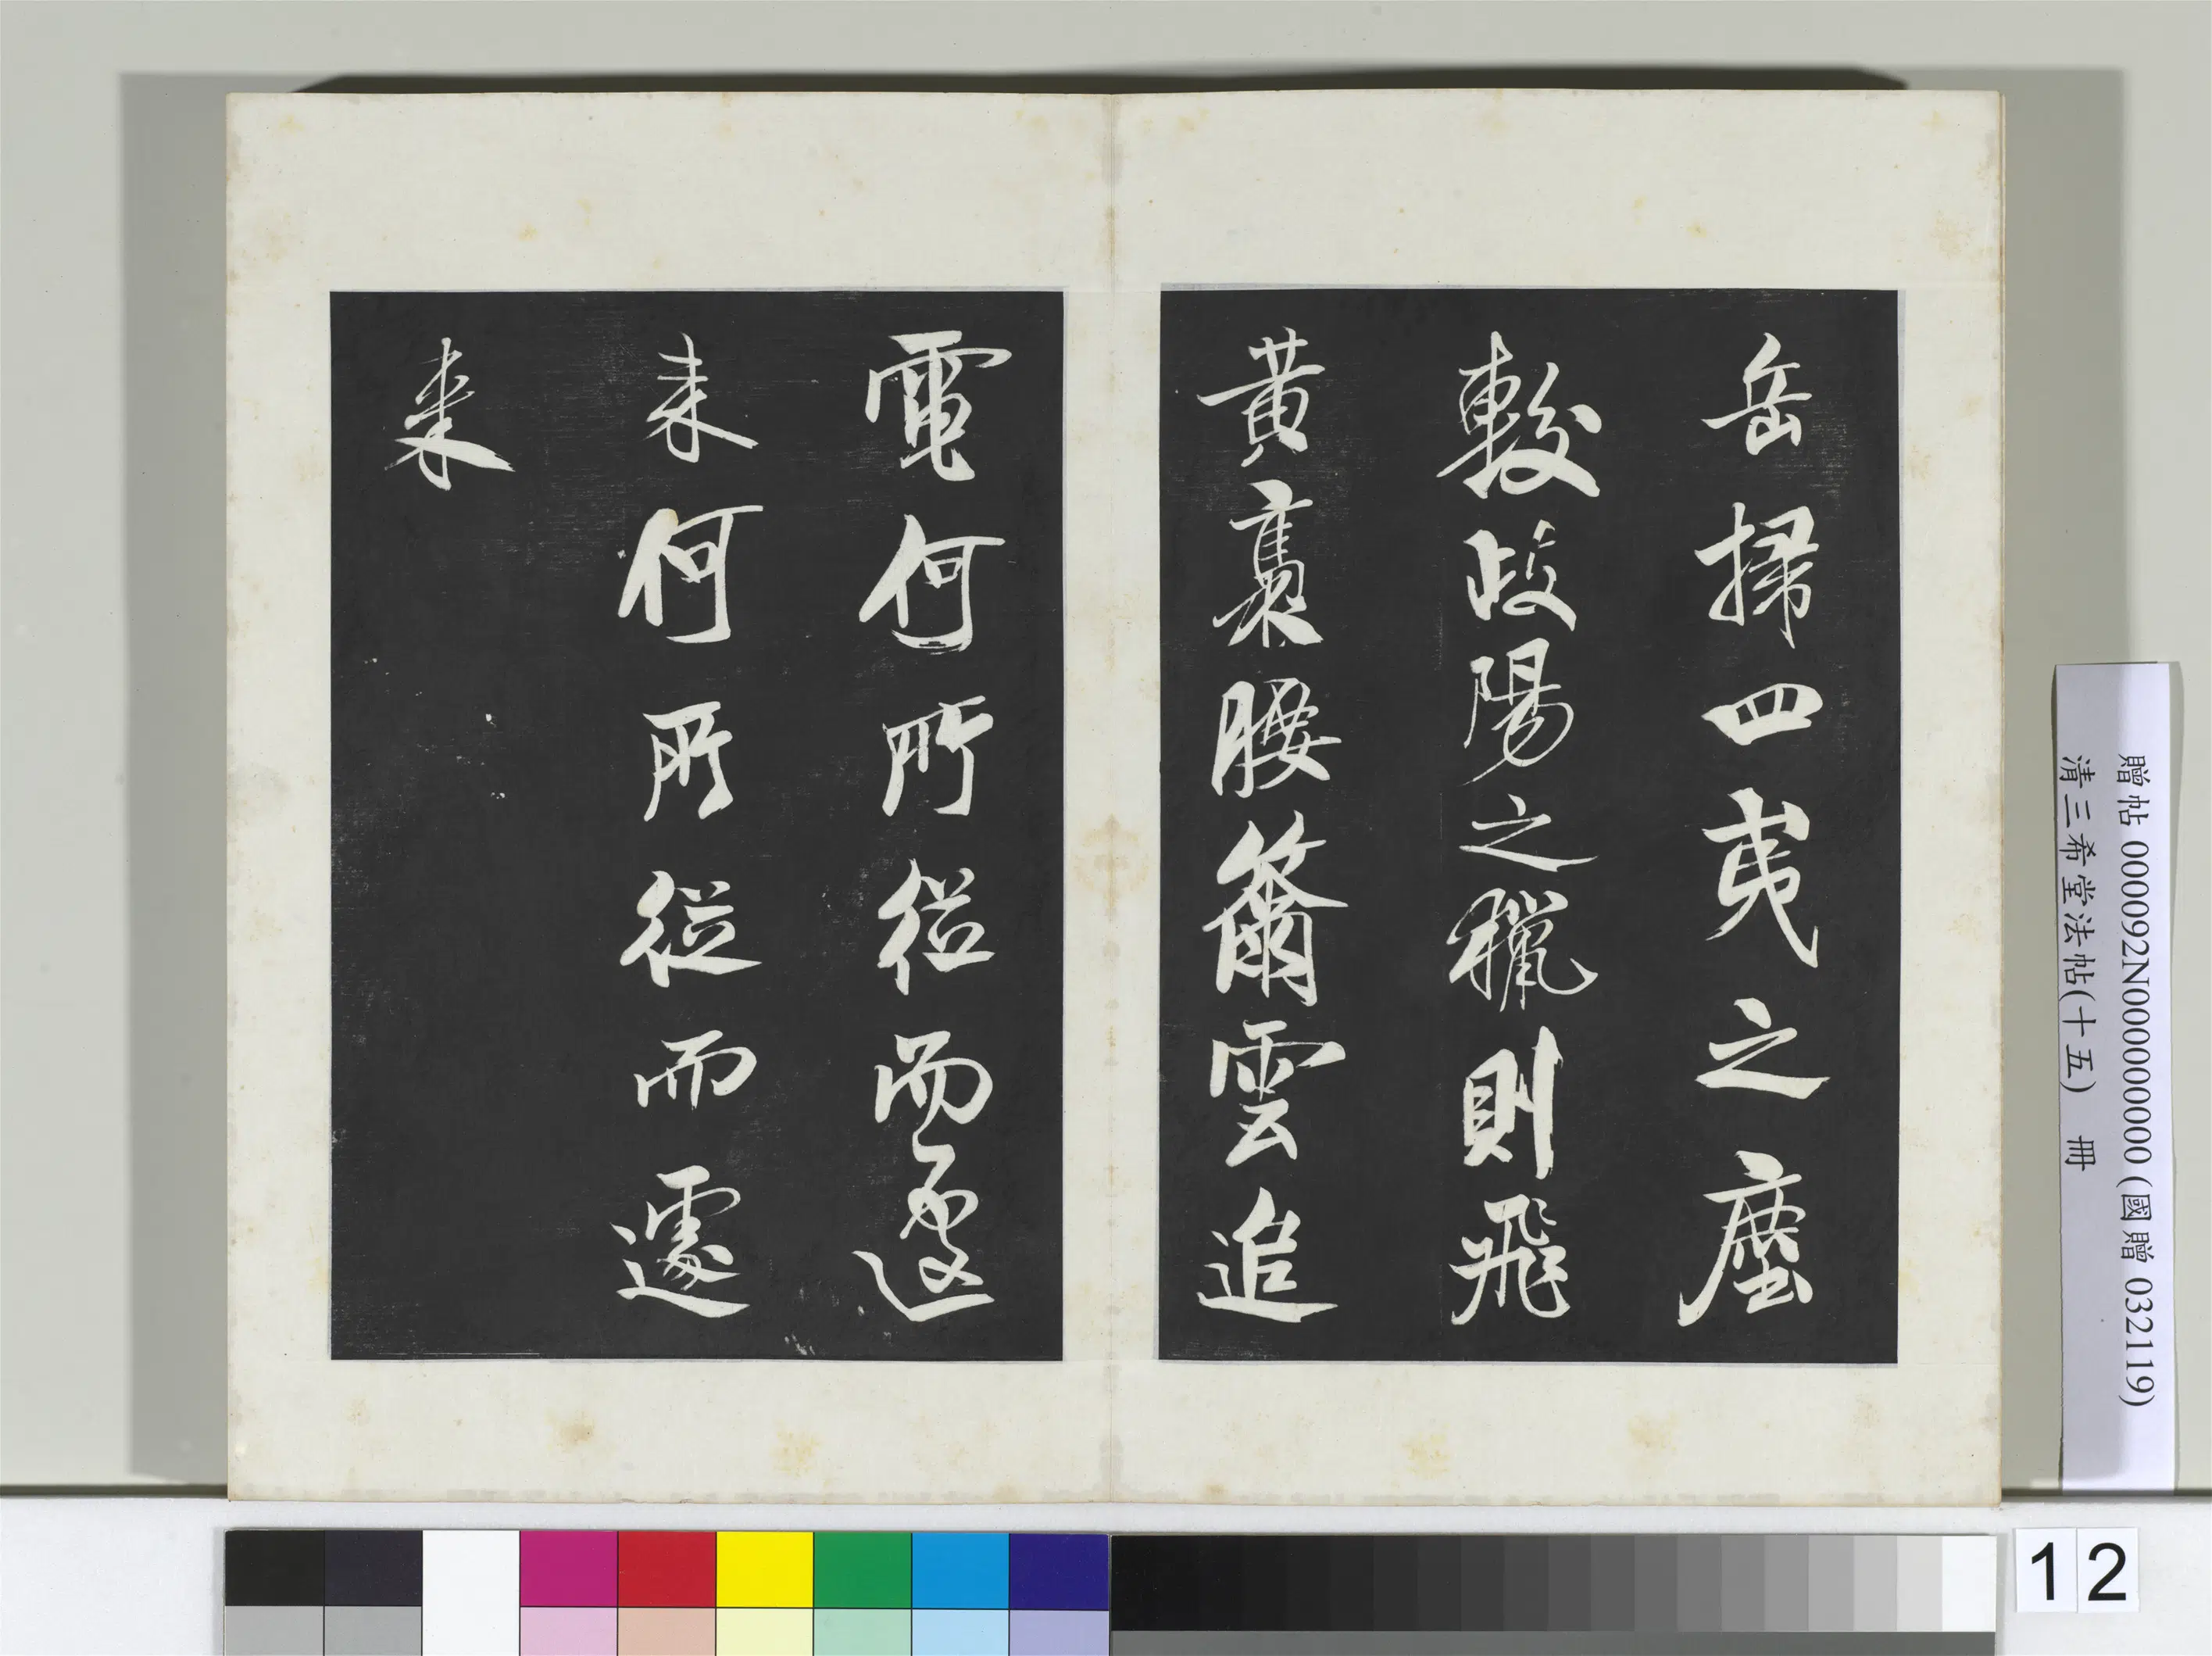 岳掃四夷之塵
較岐陽之獵則飛
黃褭腰籋雲追
電何所從而遽
来何所從而遽
来
贈帖 000092N000000000 (國贈 032119)
清三希堂法帖(十五) 冊
12